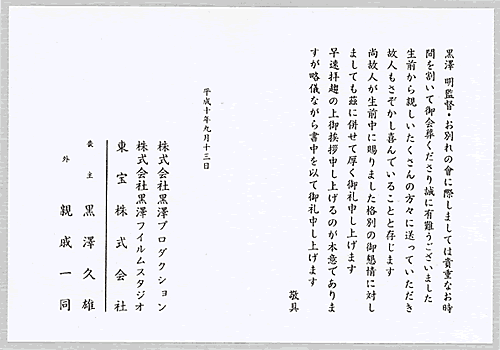 黒澤 明監督・お別れの會に際しましては貴重なお時
間を割いて御会葬くださり誠に有難うございました
生前から親しいたくさんの方々に送っていただき
故人もさぞかし喜んでいることと存じます
尚故人が生前中に賜りました格別の御懇情に対し
ましても茲に併せて厚く御礼申し上げます
早速拝趨の上御挨拶申し上げるのが本意でありま
すが略儀ながら書中を以て御礼申し上げます
敬具
平成十年九月十三日
株式会社黒澤プロダクション
株式会社黒澤フイルムスタジオ
東宝株式会社
喪主 黒澤久雄
外 親戚一同